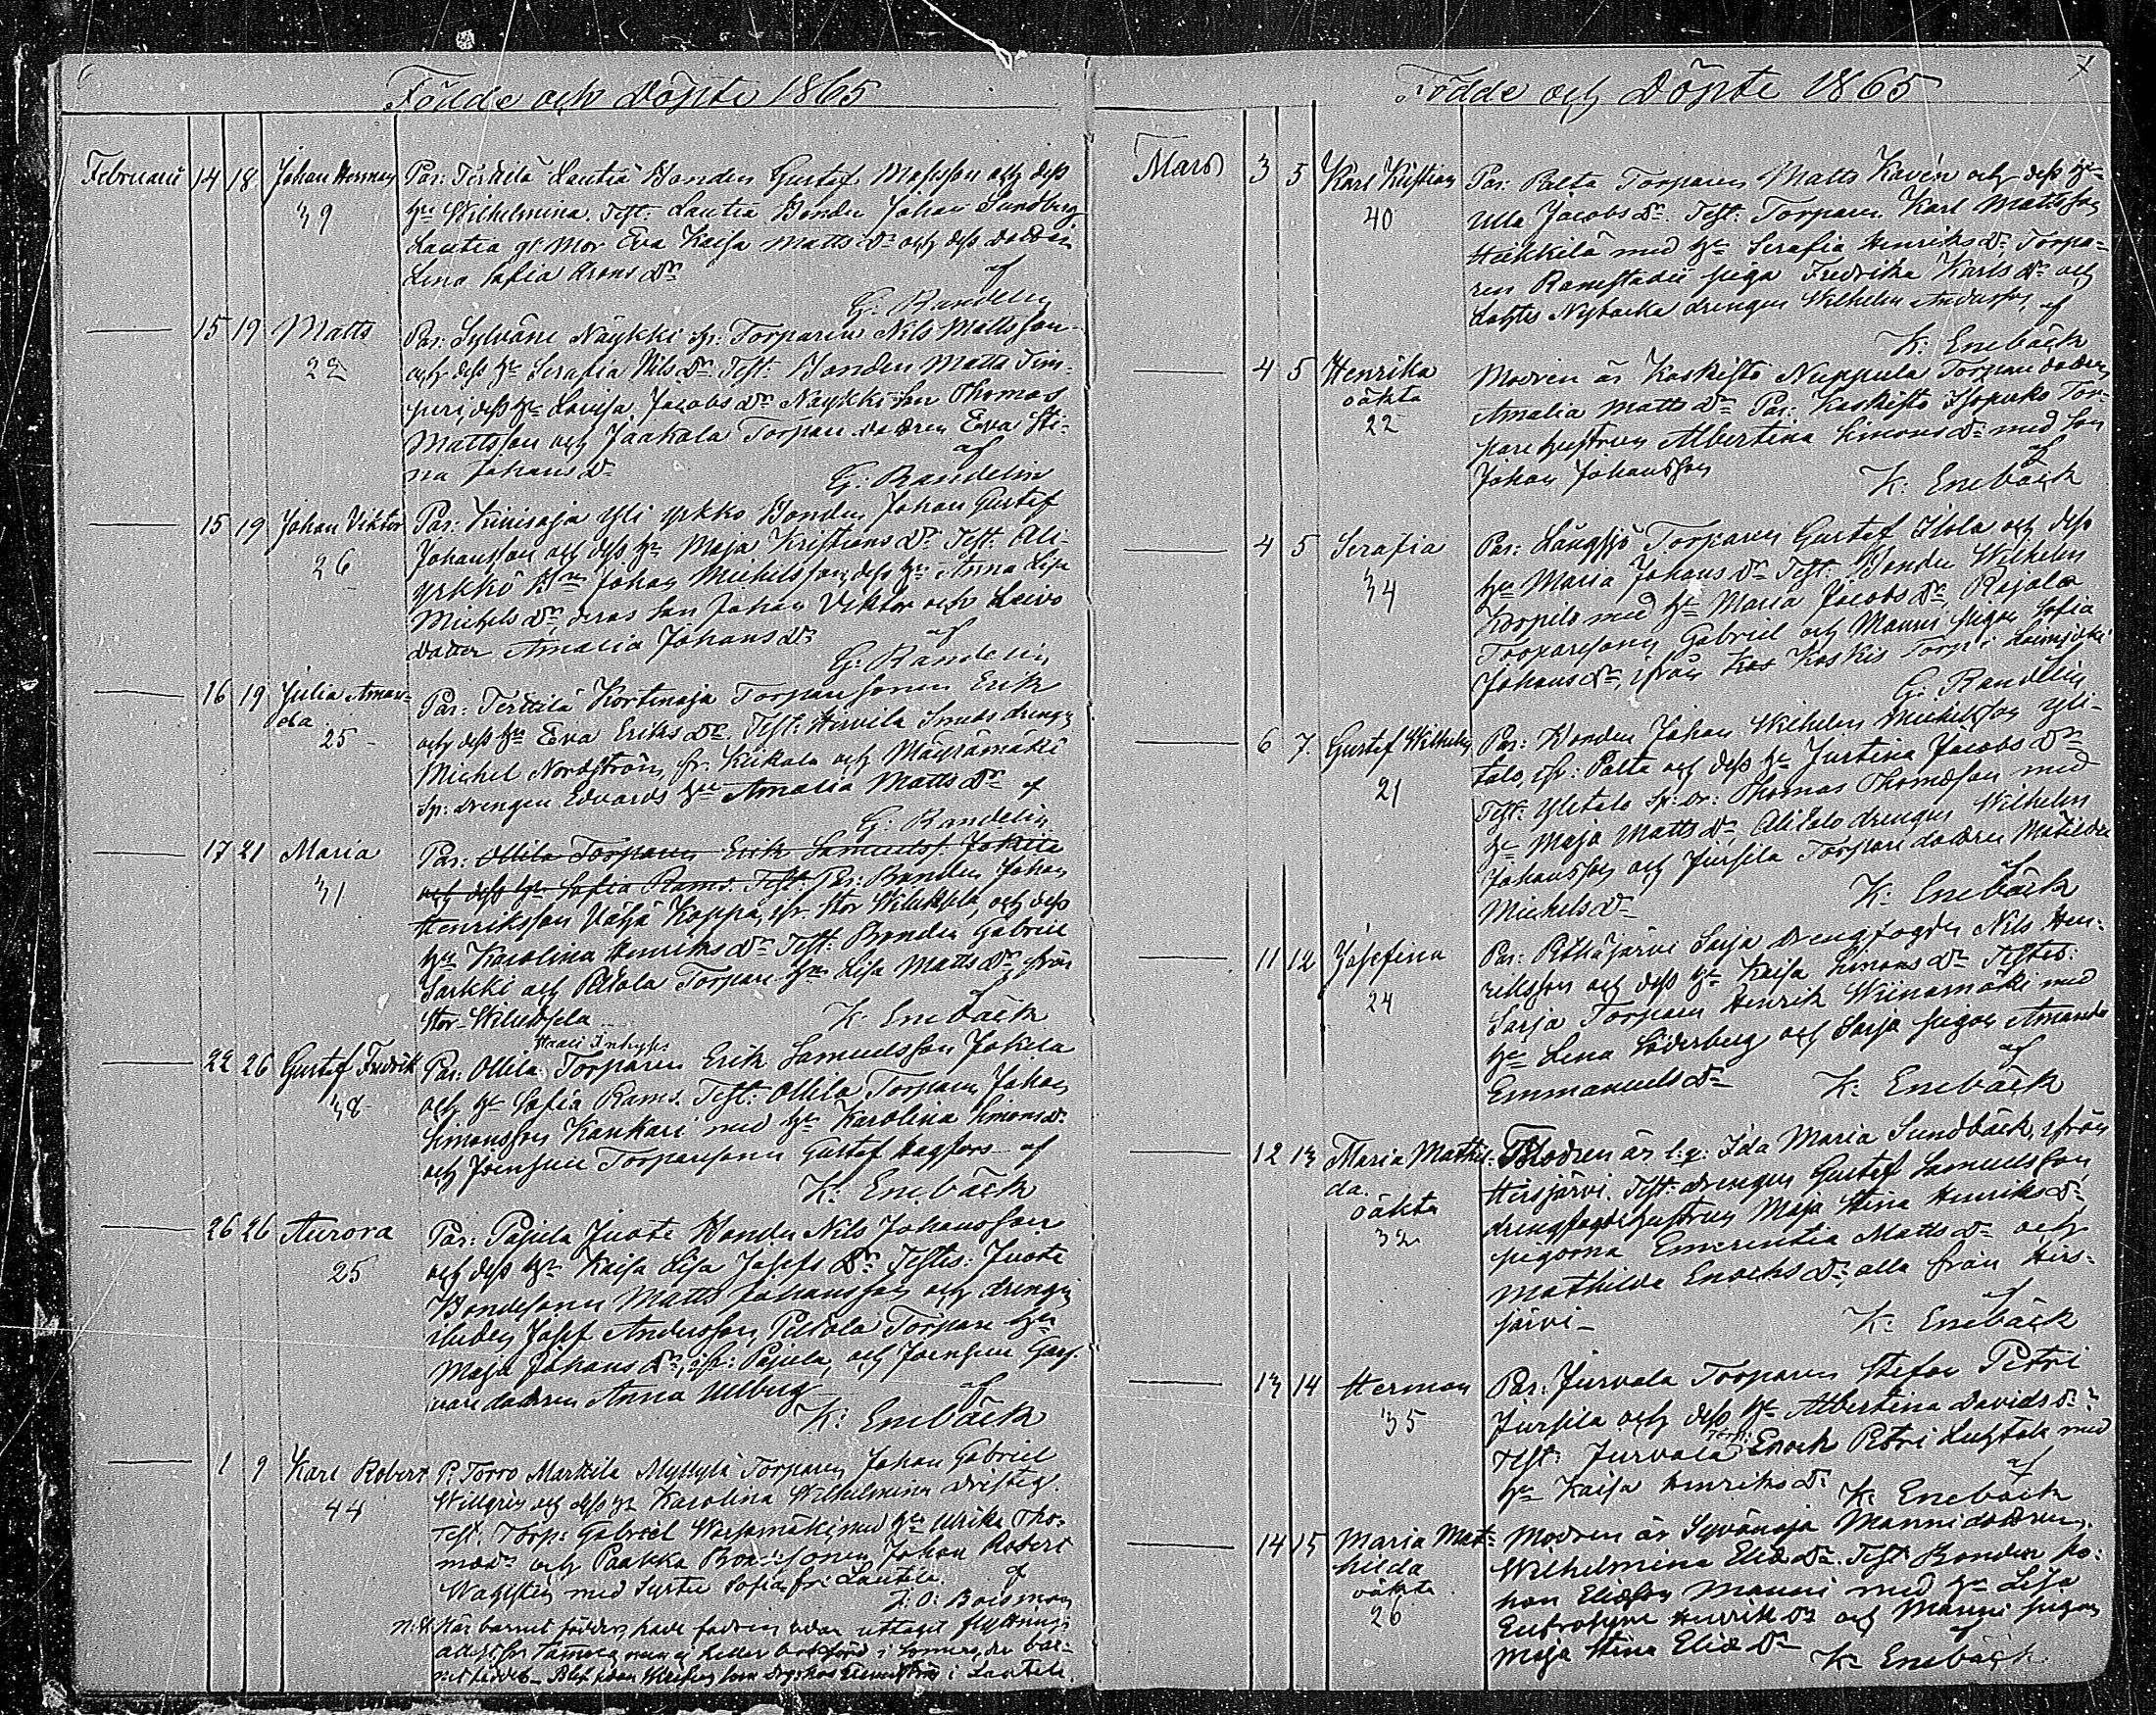 6
Födde och Döpte 1865
Februarii 14 18 Johan Herman
39
Par: Terkilä Lautia Bonden Gustaf Matsson och dess
hu Wilhelmina. Test: Lautia Bonden Johan Sundberg
Lautia gl. Mor Eva Kaisa Mattsdr och dess dotter
Lena Sofia Aronsdr
af
G: Randelin
15 19 Matts
22
Par: Näykki sp: Torparen Nils Mattsson
och dess hu Serafia Nilsdr Test: Bonden Matts
dess hu Lovisa Jacobsdr Näykki son Thomas
Mattsson och Jaakala Torpare dottren Eva Sti-
na Johansdr
af
G: Randelin
15 19 Johan Viktor
26
Par: Yli Yrkko Bonden Johan Gustaf
Johansson och dess hu Maja Kristiansdr Test: Ali-
Yrkkö Bn Johan Michelsson, dess hu Anna Lisa
Michelsdr, deras son Johan Viktor och
dotter Amalia Johansdr
af
G: Randelin
16 19 Julia Aman-
da
25
Par: Terkilä Kortenoja Torpare sonen Erik
och dess hu Eva Eriksdr. Test: Smedsdrengen
Michel Nordström, fr. Kukola och Mäyrämäki
sp: drengen Edvards hu Amalia Mattsdr af
G: Randelin
17 21 Maria
31
Par: Ollila Torparen Erik Samuelss. Jokela
och dess hu Sofia Rams. Test: Par: Bonden Johan
Henriksson Koppa, ifr. Stor och dess
hu Karolina Henriksdr Test: Bonden Gabriel
Sarkki och Peltola Torpare hu Lisa Mattsdr från
Stor-
af
K: Enebäck
22 26 Gustaf Fredrik
38
Par: Ollila Torparen Erik Samuelsson Jokela
och hu Sofia Rams. Test: Ollila Torparen Johan
Simonsson Kankari med hu Karolina Simonsdr
och Joensuu Torparesonen Gustaf Hagfors af
K: Enebäck
26 26 Aurora
25
Par: Pajula Juote Bonden Nils Johansson
och dess hu Kaisa Lisa Josefsdr Testes: Juote
Bondesonen Matts Johansson och drengen
Josef Andersson, Peltola Torpare hu
Maja Johansdr, ifr: Pajula, och Joensuu Garf-
vare dottren Anna Ullberg
af
K: Enebäck
1 9 Karl Robert
44
P: Torro Markila Myllylä Torparen Johan Gabriel
Willgren och dess hu Karolina Wilhelmina
Test. Torp: Gabriel med hu Ulrika Tho-
masdr och Paakka Bondesonen Johan Robert
Wahlsten med Syster Sofia fr. Lautela.
af
J: O: Boisman
N.B. När barnet föddes, hade fadren redan uttaget flyttnings
attest men ej heller i Sommero, der bar-
net föddes. i Lautela.
7
Födde och Döpte 1865
Mars 3 5 Karl Kristian
40
Par: Palta Torparen Matts Kavén och dess hu
Ulla Jacobsdr. Test: Torparen Karl Mattsson
Heikkilä med hu Serafia Henriksdr, Torpa-
ren Ramstadii piga Fredrika Karlsdr och
Nybacka drengen Wilhelm Andersson af
K: Enebäck
4 5 Henrika
oäkta
22
Modren är Koskisto Nuppula Torpare dottren
Amalia Mattsdr Par: Koskisto Isopuko Tor-
pare hustrun Albertina Simonsdr med son
Johan Johansson
af
K: Enebäck
4 5 Serafia
34
Par: Långsjö Torparen Gustaf Ilola och dess
hu Maria Johansdr Test: Bonden Wilhelm
Korpilo med hu Maria Jacobsdr, Rajala
Torparesonen Gabriel och Manni pigan Sofia
Johansdr, ifrån Koskis Torp i
G: Randelin
6 7 Gustaf Wilhelm
21
Par: Bonden Johan Wilhelm Michelsson Yli-
talo, ifr: Palta och dess hu Justina Jacobsdr
Test: Ylitalo sp: dr: Thomas Thomasson med
hu Maja Mattsdr, Alitalo drengen Wilhelm
Johansson och Jursila Torpare dottren Matilda
Michelsdr
af
K: Enebäck
11 12 Josefina
24
Par: Pitkäjärvi Sarja Drengfogden Nils Hen-
riksson och dess hu Kaisa Simonsdr Testes:
Sarja Torparen Henrik Wiinamäki med
hu Lena Söderberg och Sarja pigan Amanda
Emmanuelsdr
af
K: Enebäck
12 13 Maria Mathil-
da.
oäkta
32
Modren är l: q: Ida Maria Sundbäck, ifrån
Hirsjärvi. Test: drengen Gustaf Samuelsson
drengfogdehustrun Maja Stina Henriksdr
pigorna Emerentia Mattsdr och
Mathilda Enochsdr, alla från Hirs-
järvi
af
K: Enebäck
13 14 Herman
35
Par: Jurvala Torparen Stefan Petri
Jursila och dess hu Albertina Davidsdr:
Test: Jurvala Torp: Enoch Petri Luhtala med
hu Kaisa Henriksdr
af
K: Enebäck
14 15 Maria Mat-
hilda
oäkta
26
Modren är Syvänoja Manni dottren
Wilhelmina Eliædr. Test Bonden Jo-
han Eliæson Manni med hu Lisa
Henriksdr och Manni pigan
Maja Stina Eliædr
af
K: Enebäck